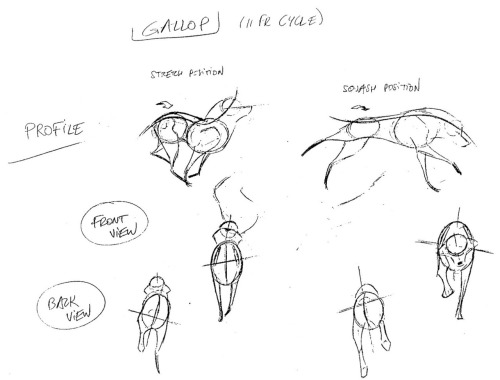 GALLOP (11 FR CYCLE)
STRETCH POSITION
SQUASH POSITION
PROFILE
FRONT
VIEW
BACK
VIEW